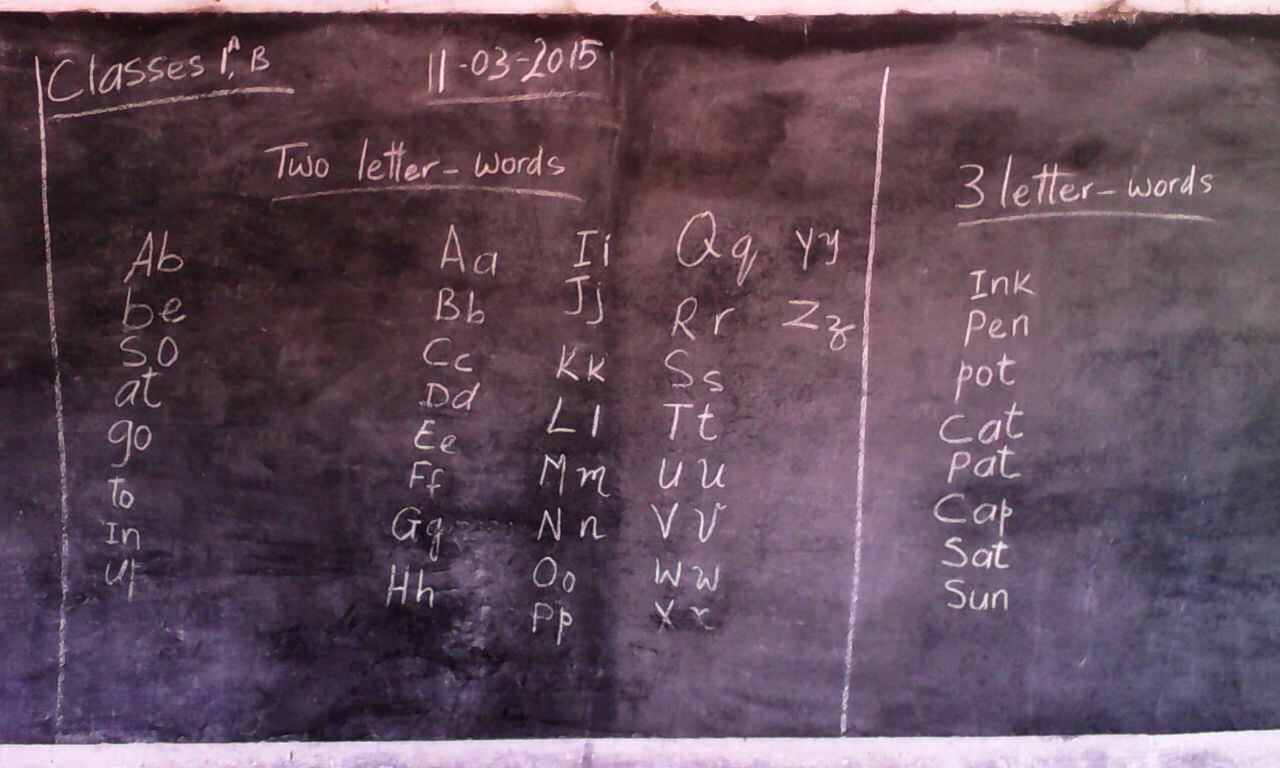 Classes 1A, B
11-03-2015
Two letter-words
Ab
be
so
at
go
to
In
up
Aa
Bb
Cc
Dd
Ee
Ff
Gg
Hh
Ii
Jj
Kk
Ll
Mm
Nn
Oo
Pp
Qq
Rr
Ss
Tt
Uu
Vv
Ww
Xx
Yy
Zz
3 letter-words
Ink
Pen
pot
Cat
pat
Cap
Sat
Sun